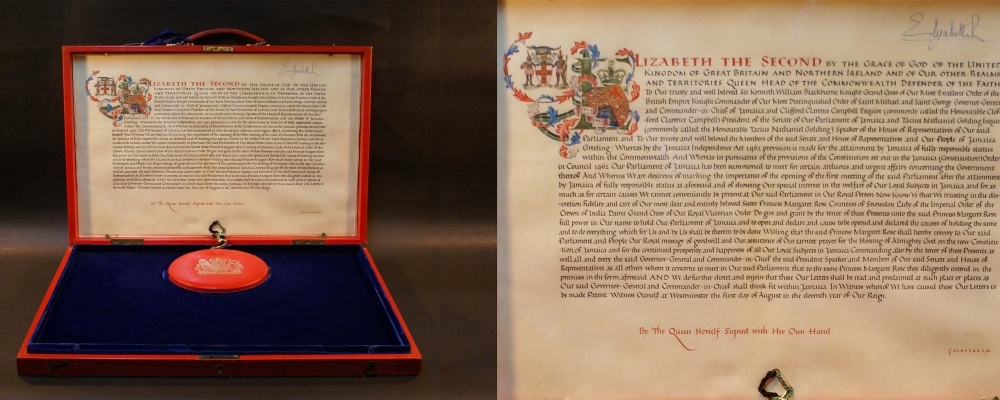 Elizabeth R
ELIZABETH THE SECOND BY THE GRACE OF GOD OF THE UNITED
KINGDOM OF GREAT BRITAIN AND NORTHERN IRELAND AND OF OUR OTHER REALMS
AND TERRITORIES QUEEN HEAD OF THE COMMONWEALTH DEFENDER OF THE FAITH
To Our trusty and well beloved Sir Kenneth William Blackburne Knight Grand Cross of Our Most Distinguished Order of the
British Empire Knight Commander of Our Most Distinguished Order of Saint Michael and Saint George Governor-General
and Commander-in-Chief of Jamaica and Clifford Clarence Campbell Esquire (commonly called the Honourable Clif-
ford Clarence Campbell) President of the Senate of Our Parliament of Jamaica and Tacius Nathaniel Golding Esquire
(commonly called the Honourable Tacius Nathaniel Golding) Speaker of the House of Representatives of Our said
Parliament and To Our trusty and well beloved the Members of the said Senate and House of Representatives and Our People of Jamaica
Greeting: Whereas by the Jamaica Independence Act 1962 provision is made for the attainment by Jamaica of fully responsible status
within the Commonwealth And Whereas in pursuance of the provisions of the Constitution set out in the Jamaica (Constitution) Order
in Council 1962 Our Parliament of Jamaica has been summoned to meet for certain arduous and urgent affairs concerning the Government
thereof And Whereas We are desirous of marking the importance of the opening of the first meeting of the said Parliament after the attainment
by Jamaica of fully responsible status as aforesaid and of showing Our special interest in the welfare of Our Loyal Subjects in Jamaica and for as
much as for certain causes We cannot conveniently be present at Our said Parliament in Our Royal Person Now Know Ye that We trusting in the dis-
cretion fidelity and care of Our most dear and entirely beloved Sister Princess Margaret Rose Countess of Snowdon Lady of the Imperial Order of the
Crown of India Dame Grand Cross of Our Royal Victorian Order Do give and grant by the tenor of these Presents unto the said Princess Margaret Rose
full power in Our name to hold Our Parliament and to open and declare and cause to be opened and declared the causes of holding the same
and to do everything which for Us and by Us shall be therein to be done Willing that the said Princess Margaret Rose shall hereby convey to Our said
Parliament and People Our Royal message of goodwill and Our assurance of Our earnest prayer for the blessing of Almighty God on the new Constitu-
tion of Jamaica and for the continued prosperity and happiness of all Our Loyal Subjects in Jamaica Commanding also by the tenor of these Presents as
well all and every the said Governor-General and Commander-in-Chief the said President Speaker and Members of Our said Senate and House of
Representatives as all others whom it concerns to meet in Our said Parliament that to the same Princess Margaret Rose they diligently intend in the
premises in the form aforesaid AND We do further direct and enjoin that these Our Letters shall be read and proclaimed at such place or places as
Our said Governor-General and Commander-in-Chief shall think fit within Jamaica In Witness whereof We have caused these Our Letters to
be made Patent Witness Ourself at Westminster the first day of August in the eleventh year of Our Reign.
By The Queen Herself Signed with Her Own Hand